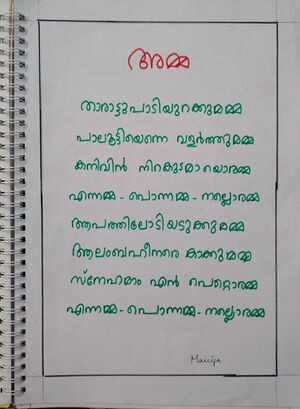 അമ്മ
താരാട്ടുപാടിയുറക്കുമമ്മ
പാലൂട്ടിയെന്നെ വളർത്തുമമ്മ
കനിവിൻ നിറകുടമായൊരമ്മ
എന്നമ്മ - പൊന്നമ്മ - നല്ലൊരമ്മ
ആപത്തിലോടിയടുക്കുമമ്മ
ആലംബഹീനരെ കാക്കുമമ്മ
സ്നേഹമാം എൻ പെറ്റൊരമ്മ
എന്നമ്മ - പൊന്നമ്മ - നല്ലൊരമ്മ